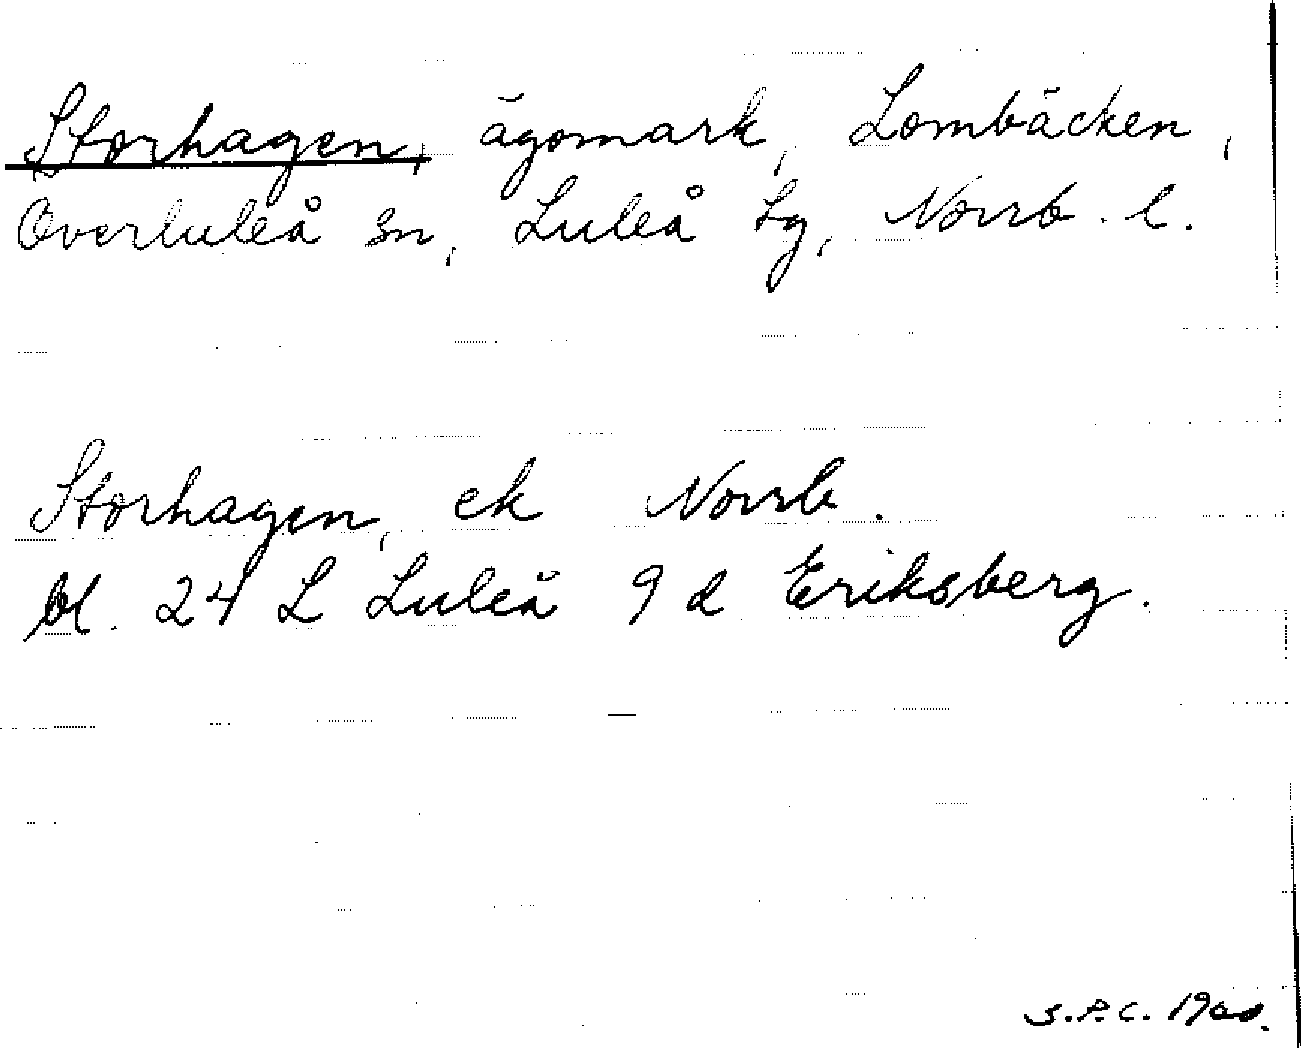 Storhagen, ägomark, Lombäcken,
Överluleå sn, Luleå tg, Norrb. l.
Storhagen, ek Norrb.
bl. 24 L Luleå 9 d Eriksberg.
S.P.C. 1960.